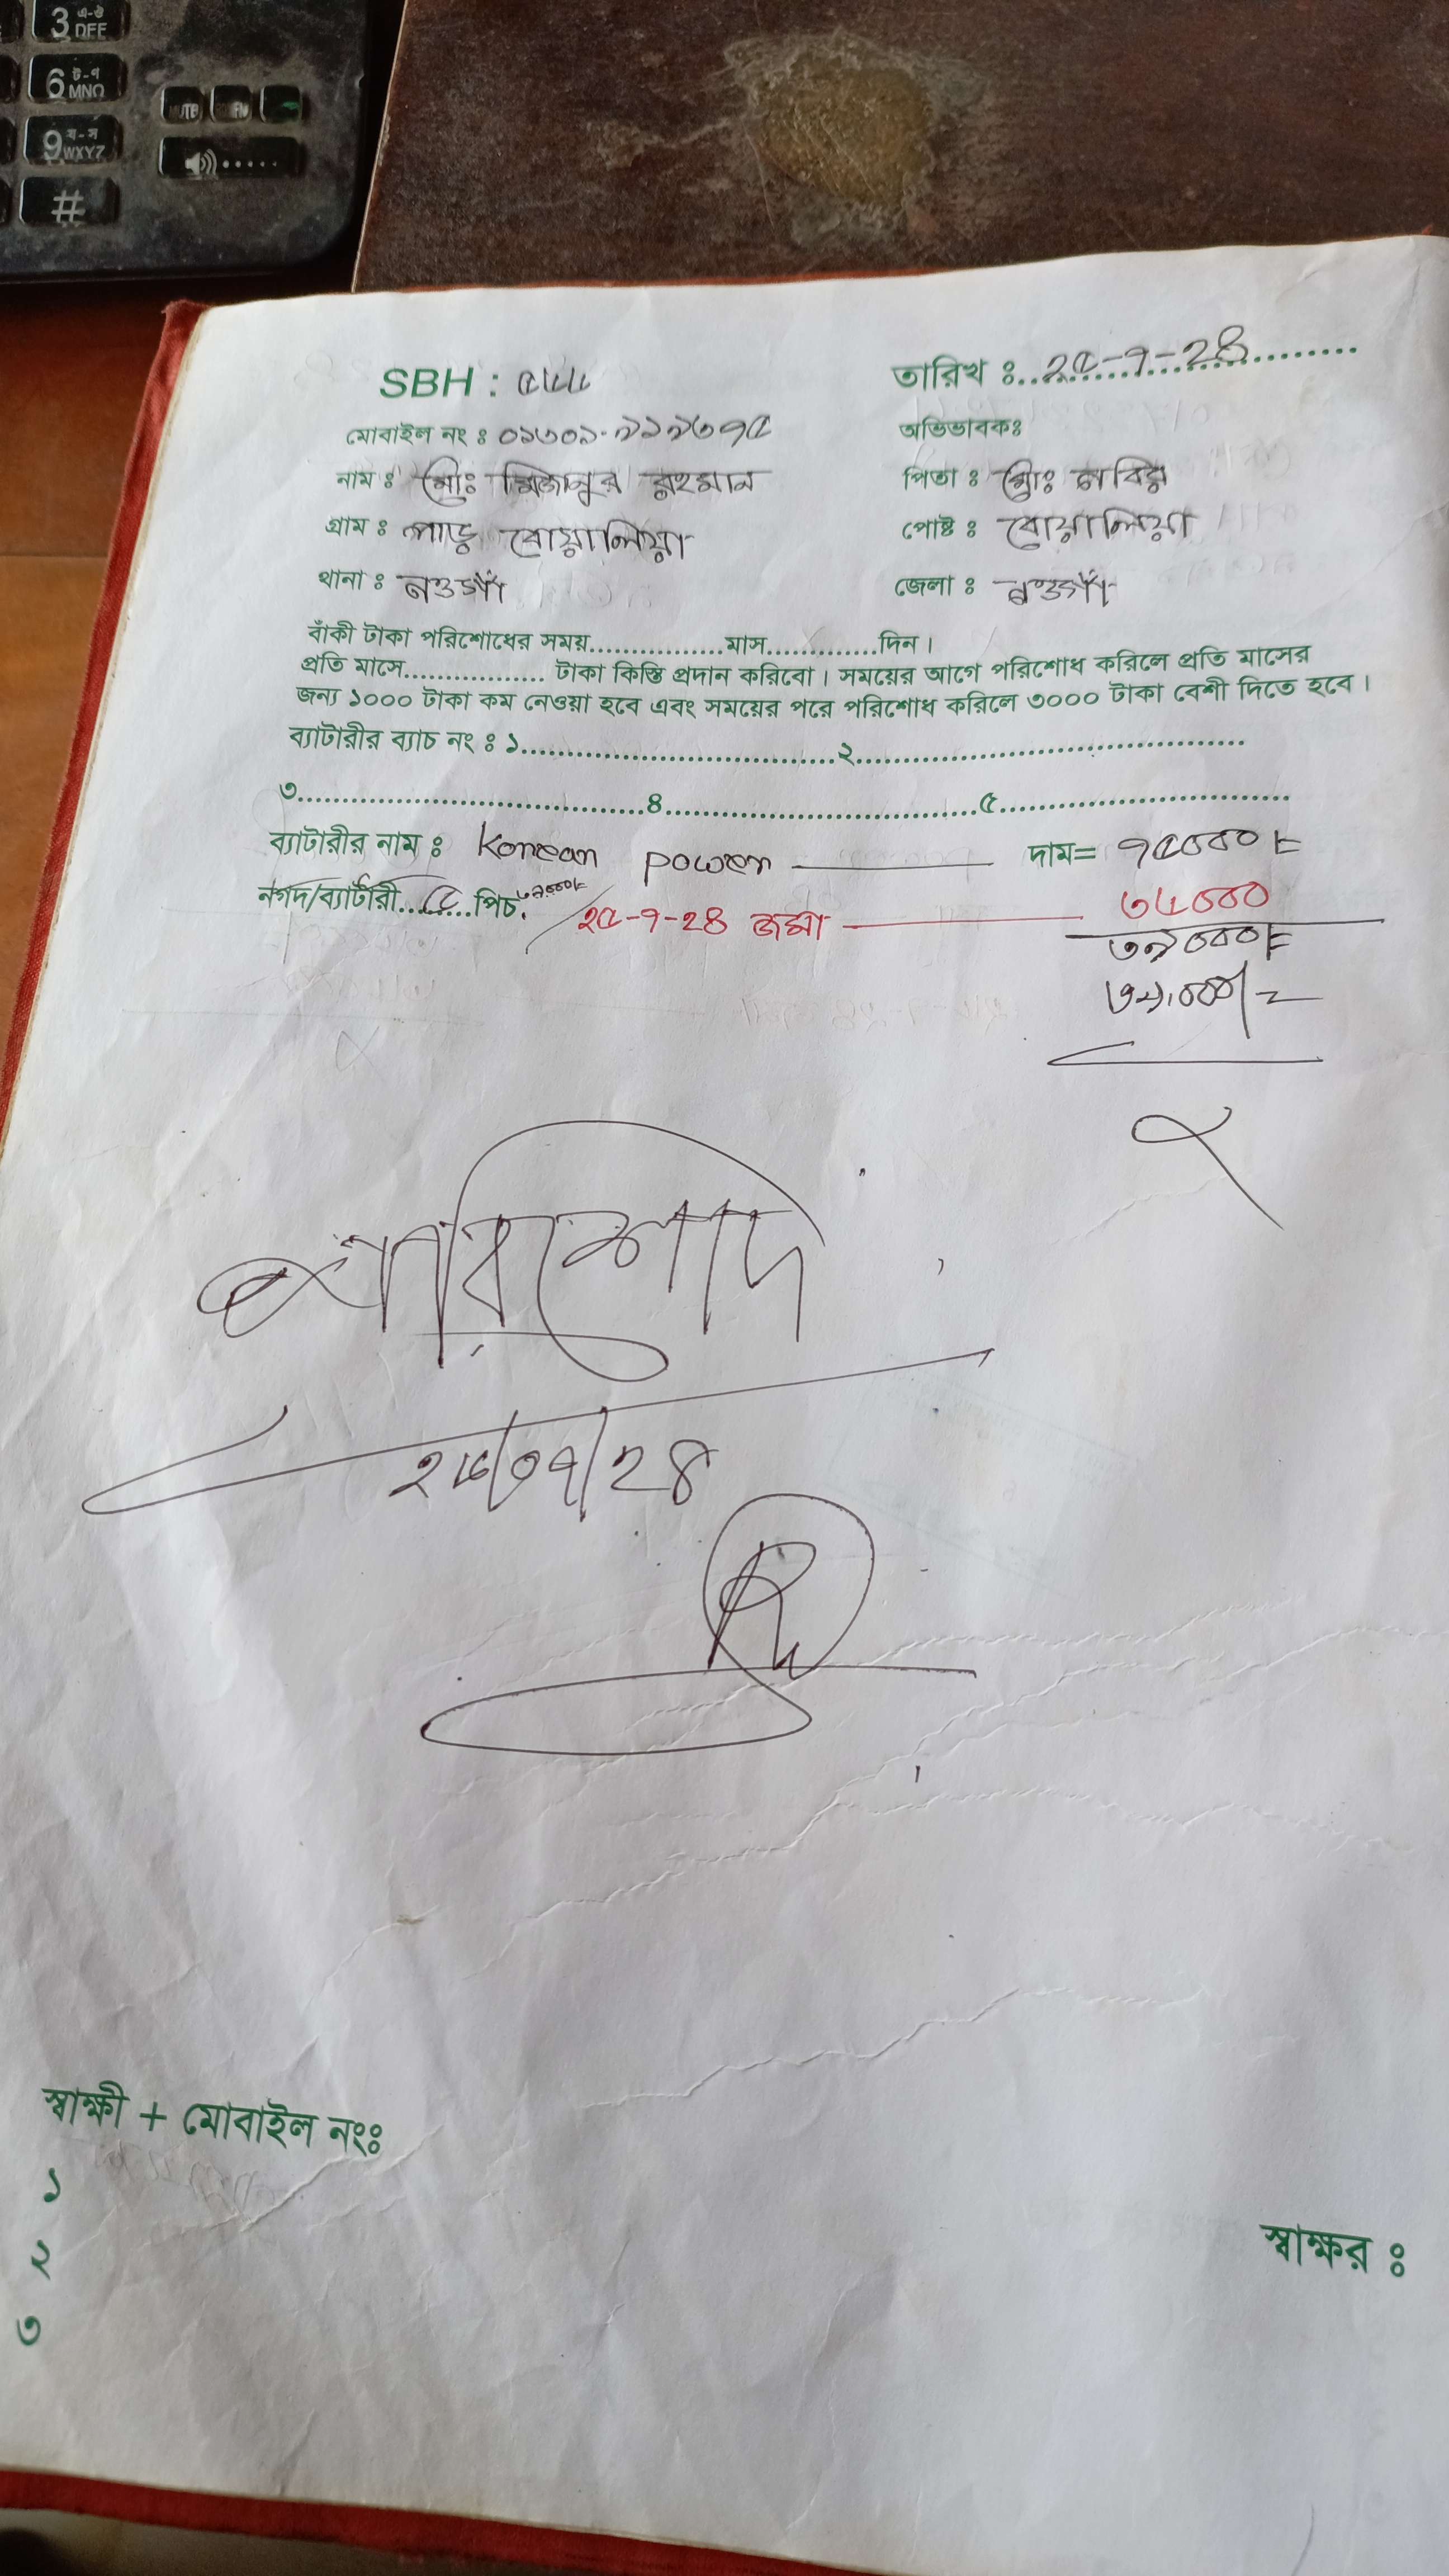 3 এ-ঙ DEF
6 ট-ণ MNO
9 য-স WXYZ
MUTE
#
SBH : ৫৬৬
তারিখ ঃ ২৫-৭-২৪
মোবাইল নং ঃ ০১৩০১-৯১৯৩৭৫
অভিভাবকঃ
নাম ঃ মোঃ মিজানুর রহমান
পিতা ঃ মোঃ লবির
গ্রাম ঃ পাড় বোয়ালিয়া
পোষ্ট ঃ বোয়ালিয়া
থানা ঃ নওগাঁ
জেলা ঃ নওগাঁ
বাঁকী টাকা পরিশোধের সময়................মাস.............দিন ।
প্রতি মাসে................. টাকা কিস্তি প্রদান করিবো । সময়ের আগে পরিশোধ করিলে প্রতি মাসের
জন্য ১০০০ টাকা কম নেওয়া হবে এবং সময়ের পরে পরিশোধ করিলে ৩০০০ টাকা বেশী দিতে হবে ।
ব্যাটারীর ব্যাচ নং ঃ ১....................................২............................................
৩.......................................৪....................................৫.................................
ব্যাটারীর নাম ঃ Korean power দাম= ৭৫০০০/=
নগদ/ব্যাটারী.. ৫ ..পিচ.
২৫-৭-২৪ জমা ৩৬০০০
৩৯০০০/=
৩৯,০০০/=
পরিশোদ
২৮/০৭/২৪
স্বাক্ষী + মোবাইল নংঃ
১
২
৩
স্বাক্ষর ঃ